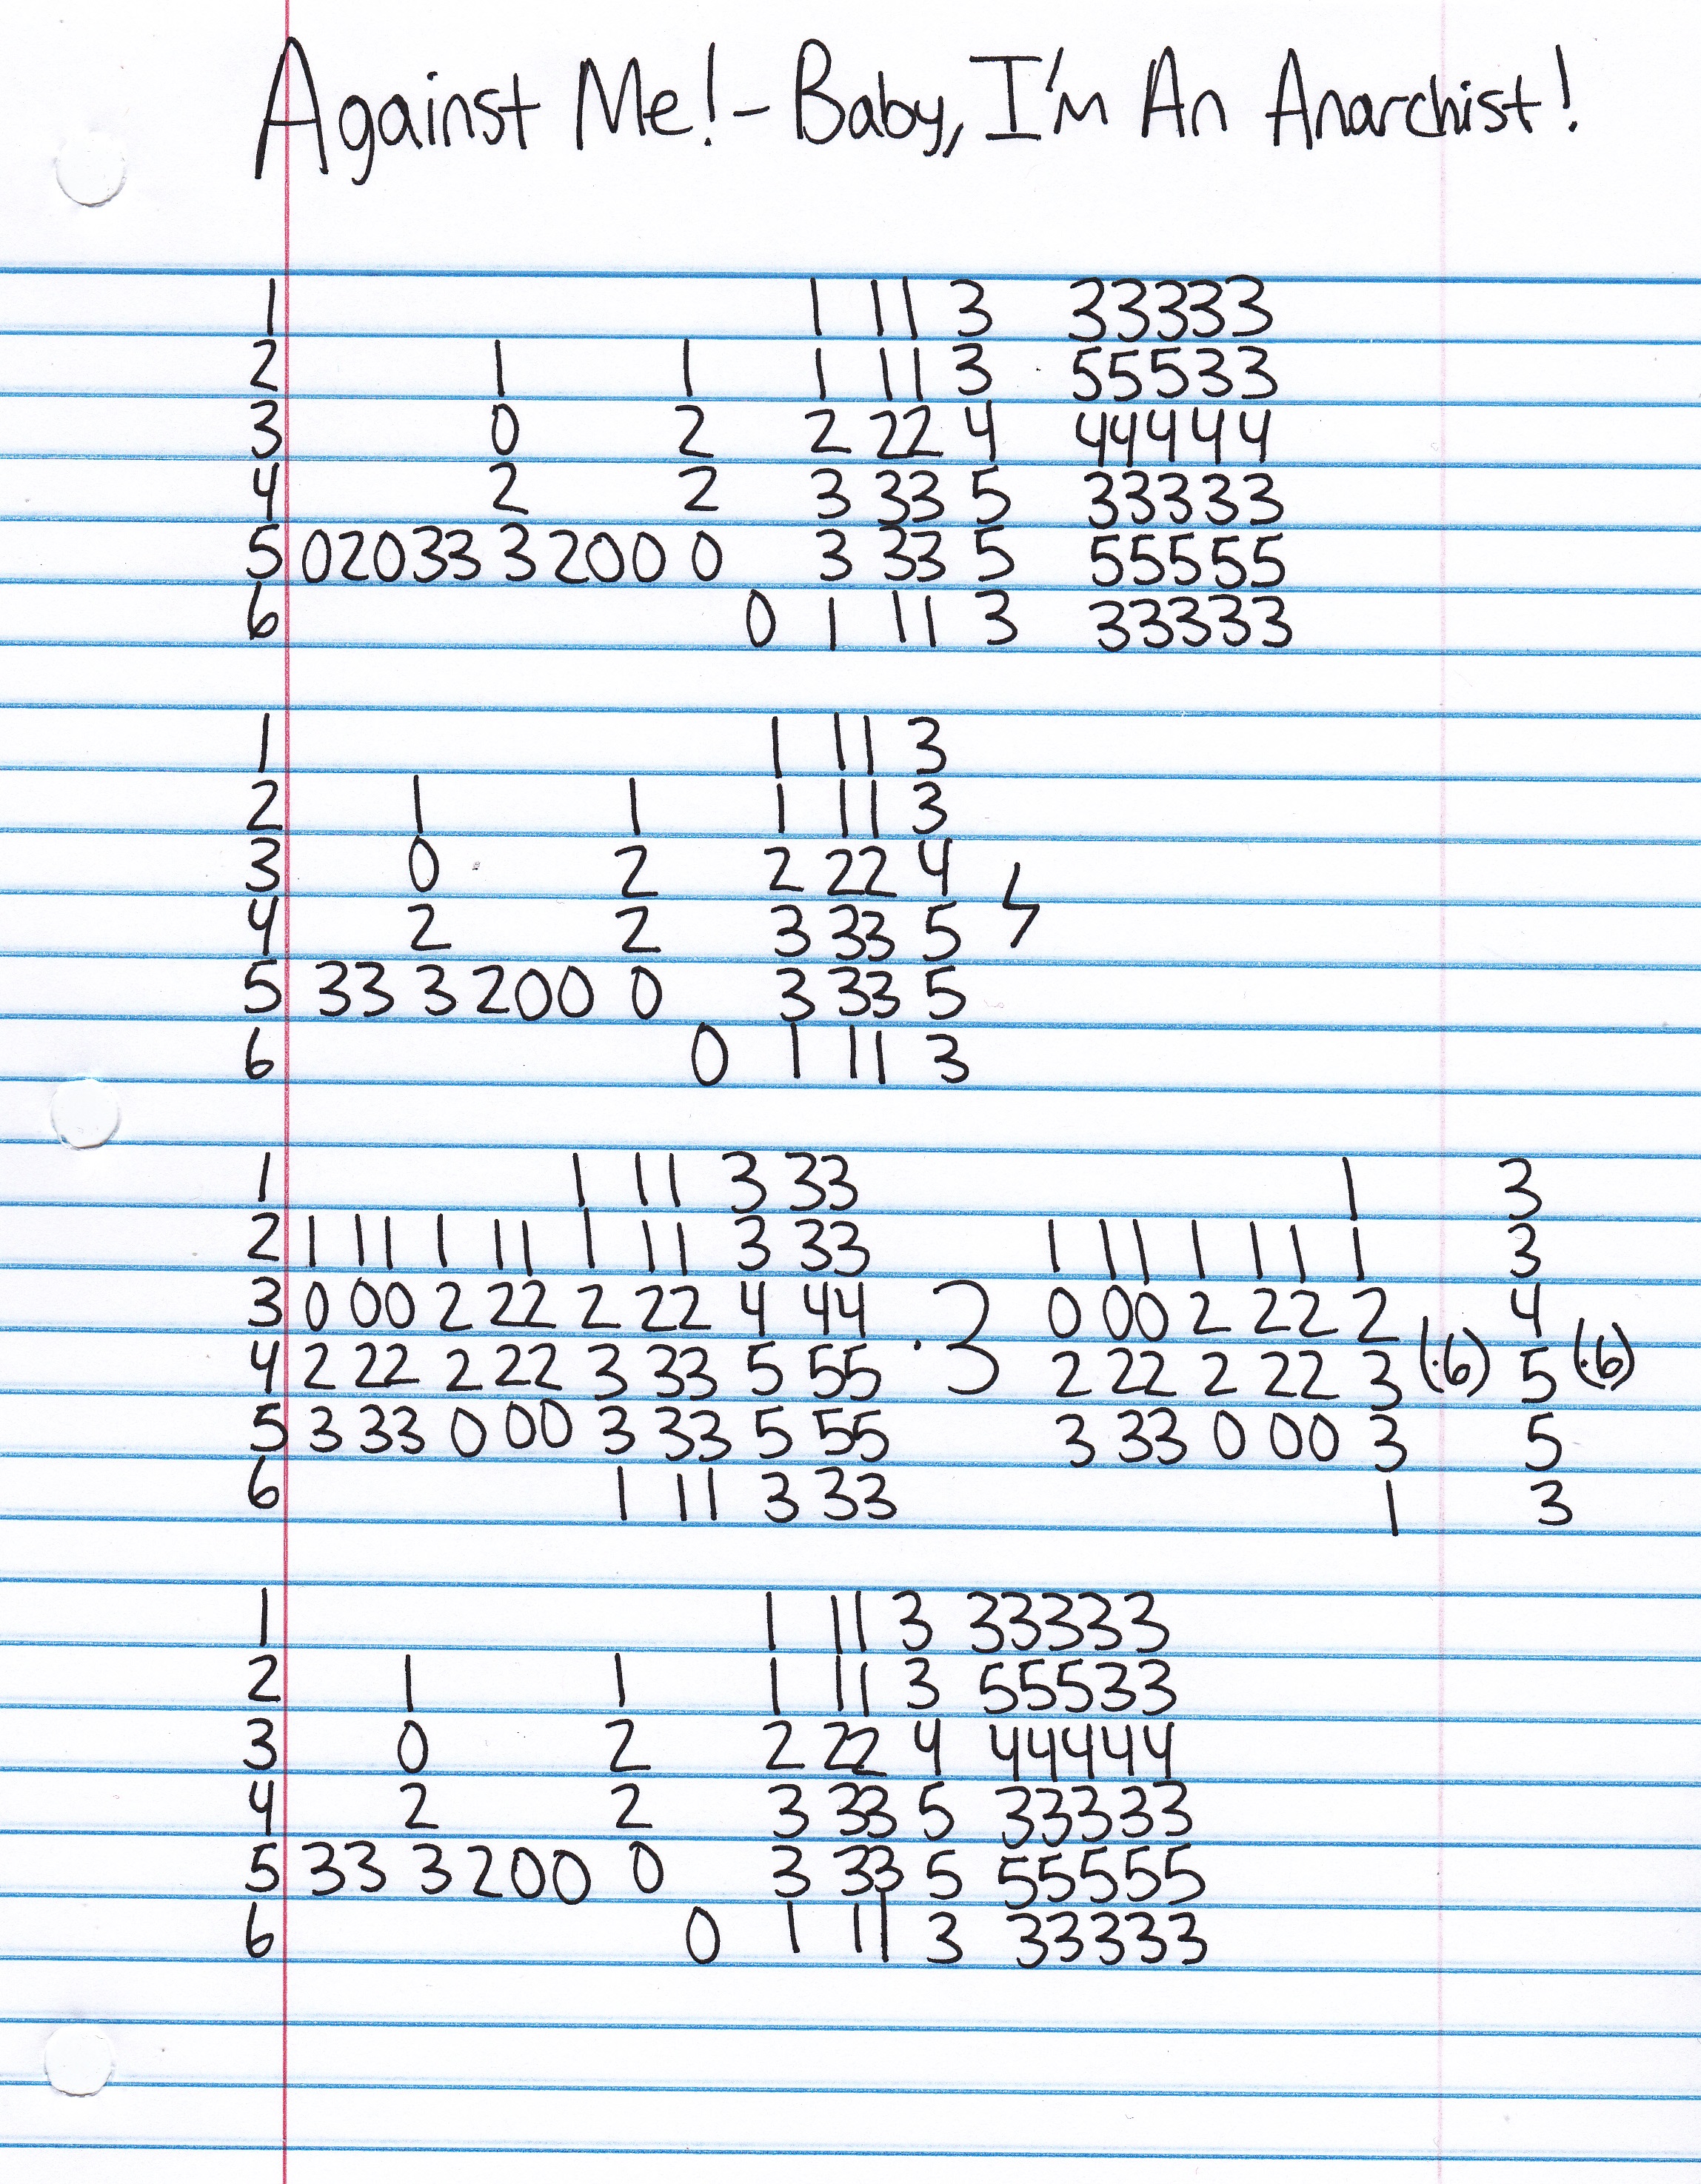 Against Me! - Baby, I'm An Anarchist!
1 1 11 3 33333
2 1 1 1 11 3 55533
3 0 2 2 22 4 44444
4 2 2 3 33 5 33333
5 02033 3 200 0 3 33 5 55555
6 0 1 11 3 33333
1 1 11 3
2 1 1 1 11 3
3 0 2 2 22 4
4 2 2 3 33 5
5 33 3 200 0 3 33 5
6 0 1 11 3
1 1 11 3 33 1 3
2 1 11 1 11 1 11 3 33 1 11 1 11 1 3
3 0 00 2 22 2 22 4 44 ·3 0 00 2 22 2 4
4 2 22 2 22 3 33 5 55 2 22 2 22 3 (·6) 5 (·6)
5 3 33 0 00 3 33 5 55 3 33 0 00 3 5
6 1 11 3 33 1 3
1 1 11 3 33333
2 1 1 1 11 3 55533
3 0 2 2 22 4 44444
4 2 2 3 33 5 33333
5 33 3 200 0 3 33 5 55555
6 0 1 11 3 33333